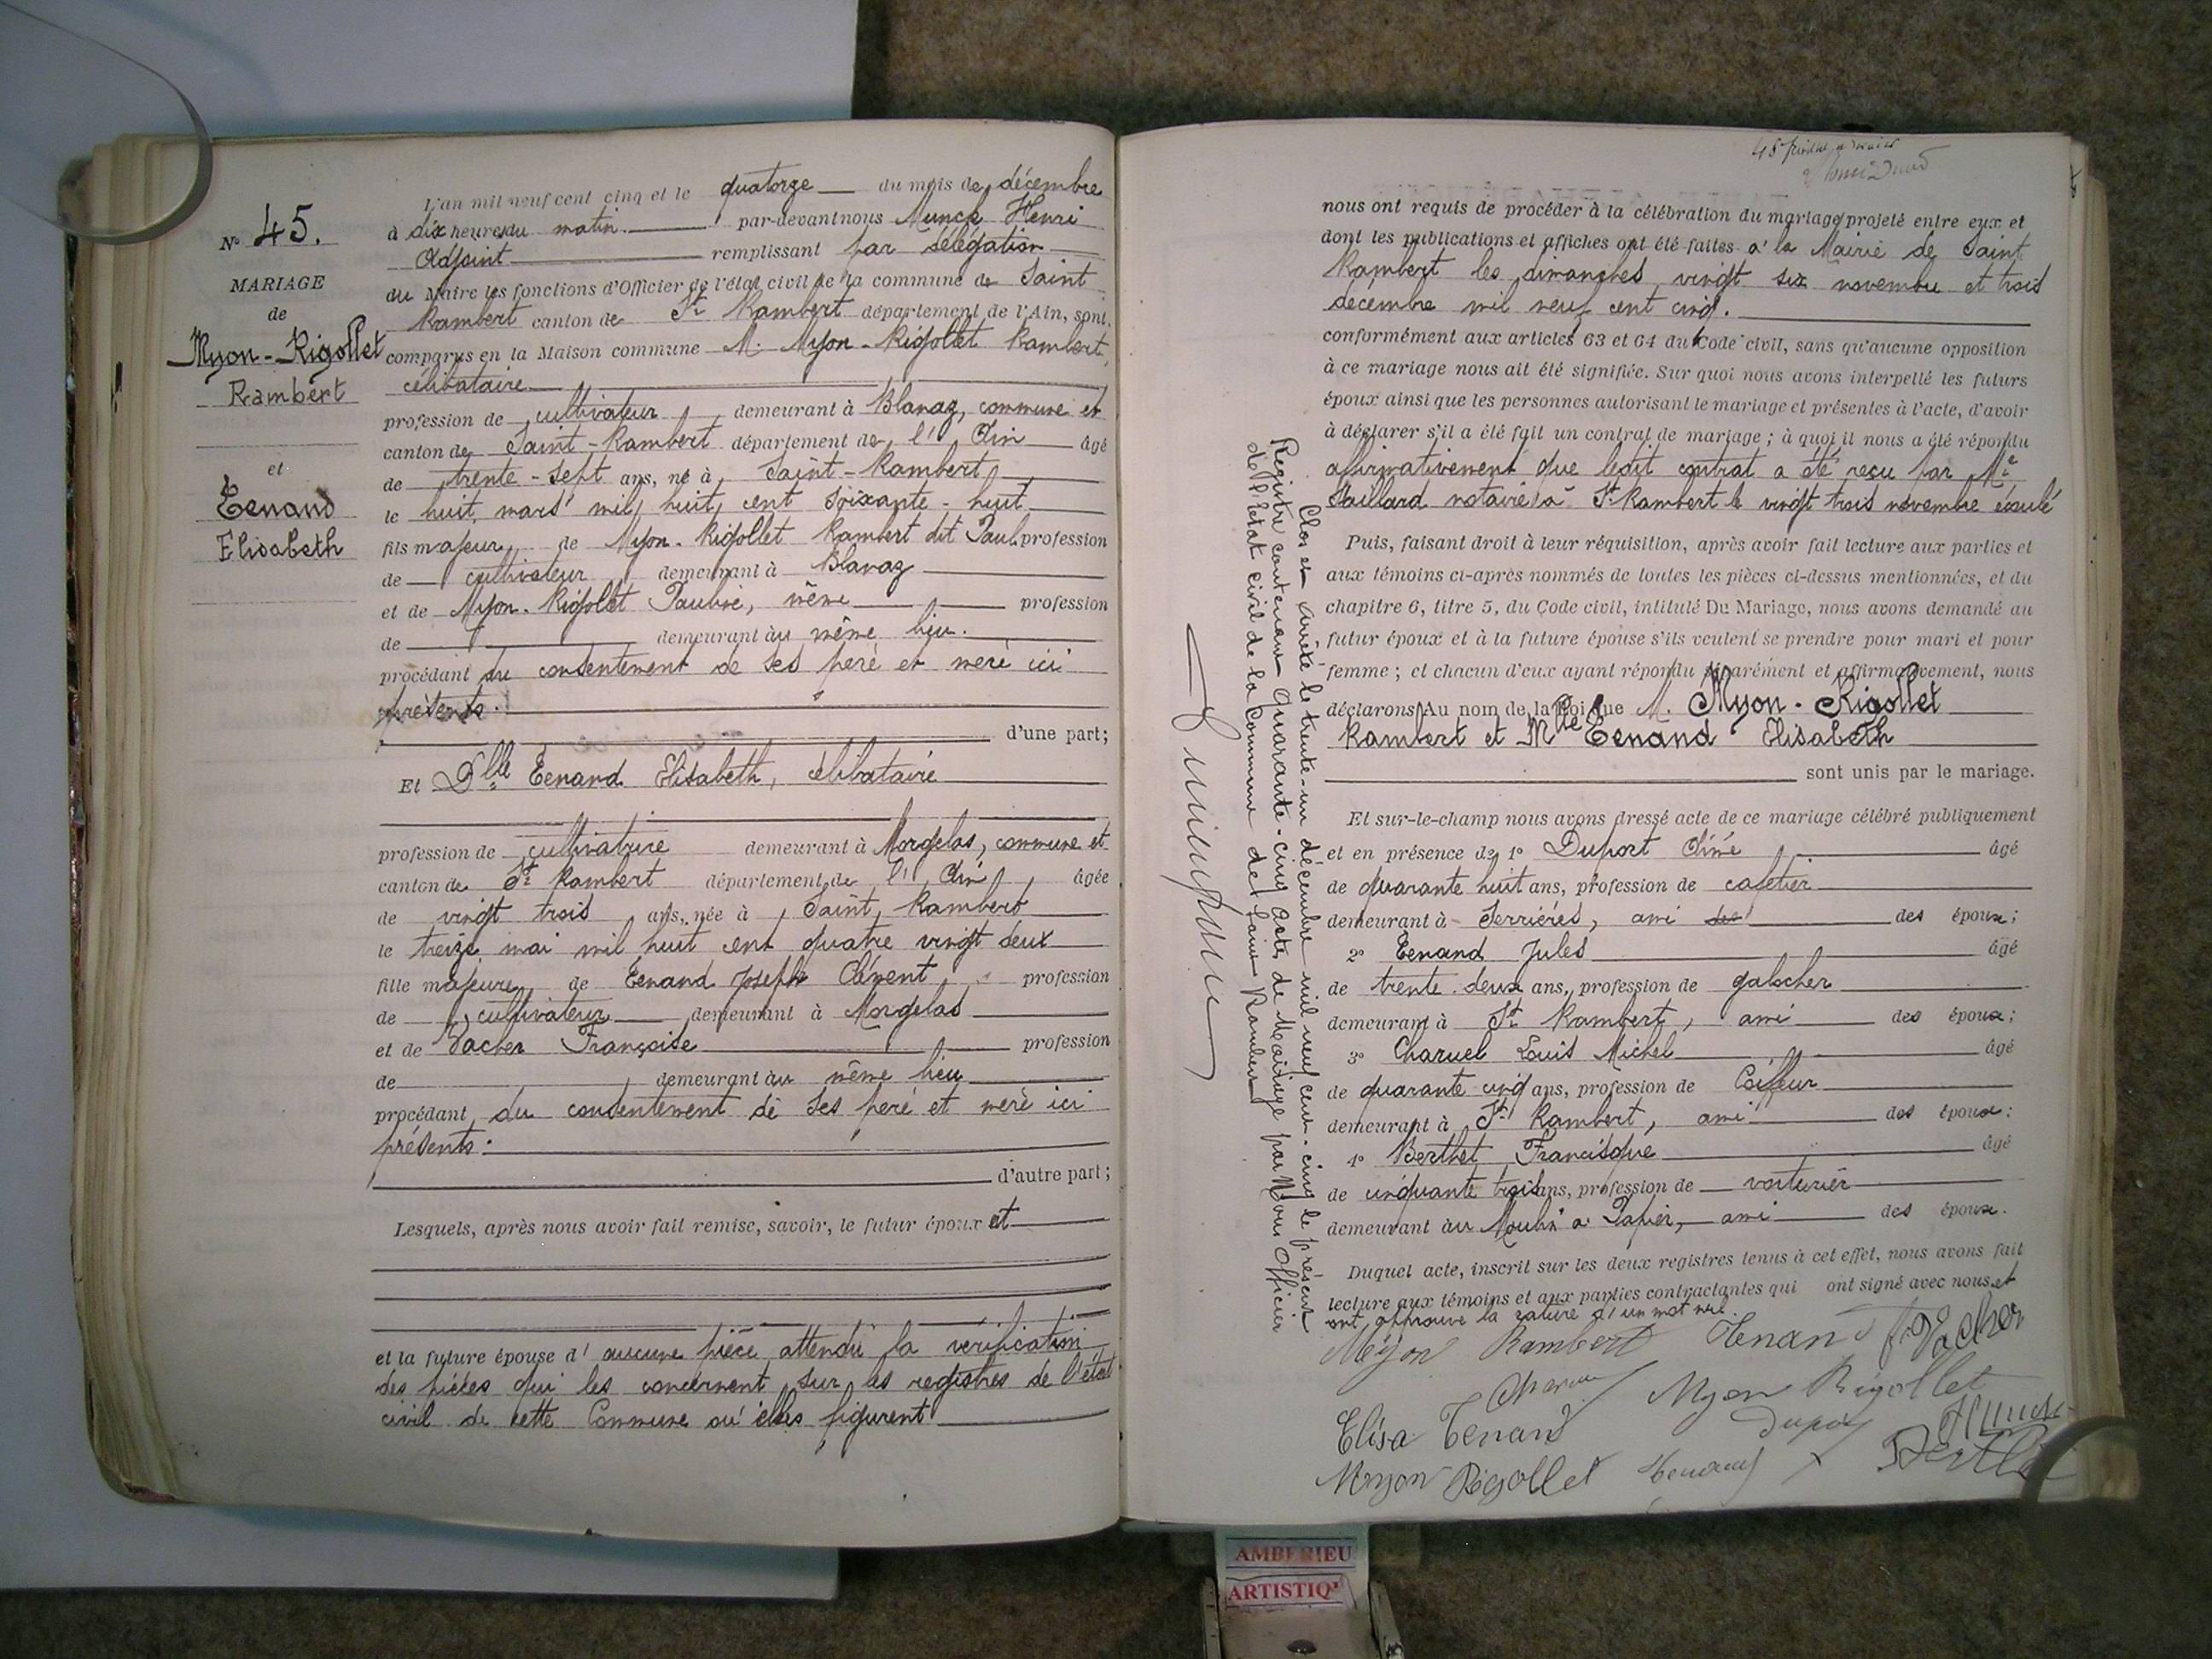 N° 45.
MARIAGE
de
Myon-Rigollet
Rambert
et
Tenand
Elisabeth
L'an mil neuf cent cinq et le quatorze du mois de décembre
à dix heures du matin. par-devant nous Munck Henri
Adjoint remplissant par délégation
du Maire les fonctions d'Officier de l'état civil de la commune de Saint
Rambert canton de St Rambert département de l'Ain, sont
comparus en la Maison commune M. Myon-Rigollet Rambert,
célibataire
profession de cultivateur demeurant à Blanaz, commune et
canton de Saint-Rambert département de l'Ain âgé
de trente-sept ans, né à Saint-Rambert
le huit mars mil huit cent soixante-huit
fils majeur de Myon-Rigollet Rambert dit Paul profession
de cultivateur demeurant à Blanaz
et de Myon-Rigollet Pauline, même profession
de demeurant au même lieu.
procédant du consentement de ses père et mère ici
présents.
d'une part;
Et Dlle Tenand Elisabeth, célibataire
profession de cultivatrice demeurant à Morgelas, commune et
canton de St Rambert département de l'Ain, âgée
de vingt trois ans, née à Saint Rambert
le treize mai mil huit cent quatre vingt deux
fille majeure de Tenand Joseph Clément profession
de cultivateur demeurant à Morgelas
et de Vacher Françoise profession
de demeurant au même lieu
procédant du consentement de ses père et mère ici
présents.
d'autre part;
Lesquels, après nous avoir fait remise, savoir, le futur époux et
et la future épouse d'aucune pièce attendu la vérification
des pièces qui les concernent sur les registres de l'état
civil de cette Commune où elles figurent
nous ont requis de procéder à la célébration du mariage projeté entre eux et
dont les publications et affiches ont été faites à la Mairie de Saint
Rambert les dimanches vingt six novembre et trois
décembre mil neuf cent cinq.
conformément aux articles 63 et 64 du Code civil, sans qu'aucune opposition
à ce mariage nous ait été signifiée. Sur quoi nous avons interpellé les futurs
époux ainsi que les personnes autorisant le mariage et présentes à l'acte, d'avoir
à déclarer s'il a été fait un contrat de mariage; à quoi il nous a été répondu
affirmativement que ledit contrat a été reçu par Me
Saillard notaire à St Rambert le vingt trois novembre écoulé
Puis, faisant droit à leur réquisition, après avoir fait lecture aux parties et
aux témoins ci-après nommés de toutes les pièces ci-dessus mentionnées, et du
chapitre 6, titre 5, du Code civil, intitulé Du Mariage, nous avons demandé au
futur époux et à la future épouse s'ils veulent se prendre pour mari et pour
femme; et chacun d'eux ayant répondu séparément et affirmativement, nous
déclarons Au nom de la Loi que M. Myon-Rigollet
Rambert et Mlle Tenand Elisabeth
sont unis par le mariage.
Et sur-le-champ nous avons dressé acte de ce mariage célébré publiquement
et en présence de 1° Duport Aimé âgé
de quarante huit ans, profession de cafetier
demeurant à Serrières, ami des des époux;
2° Tenand Jules âgé
de trente-deux ans, profession de galocher
demeurant à St Rambert, ami des époux;
3° Charuel Louis Michel âgé
de quarante cinq ans, profession de Coiffeur
demeurant à St Rambert, ami des époux;
4° Berthet Francisque âgé
de cinquante trois ans, profession de voiturier
demeurant au Moulin à Papier, ami des époux.
Duquel acte, inscrit sur les deux registres tenus à cet effet, nous avons fait
lecture aux témoins et aux parties contractantes qui ont signé avec nous et
ont approuvé la rature d'un mot nul.
Myon Rambert Tenand F. Vacher
Charuel Myon Rigollet
Elisa Tenand Duport HMunck
Myon Rigollet Tenand Berthet
Clos et arrêté le trente-un décembre mil neuf cent-cinq le présent
Registre contenant quarante-cinq actes de Mariage par Nous Officier
de l'état civil de la Commune de Saint Rambert
AMBERIEU
ARTISTIQ'